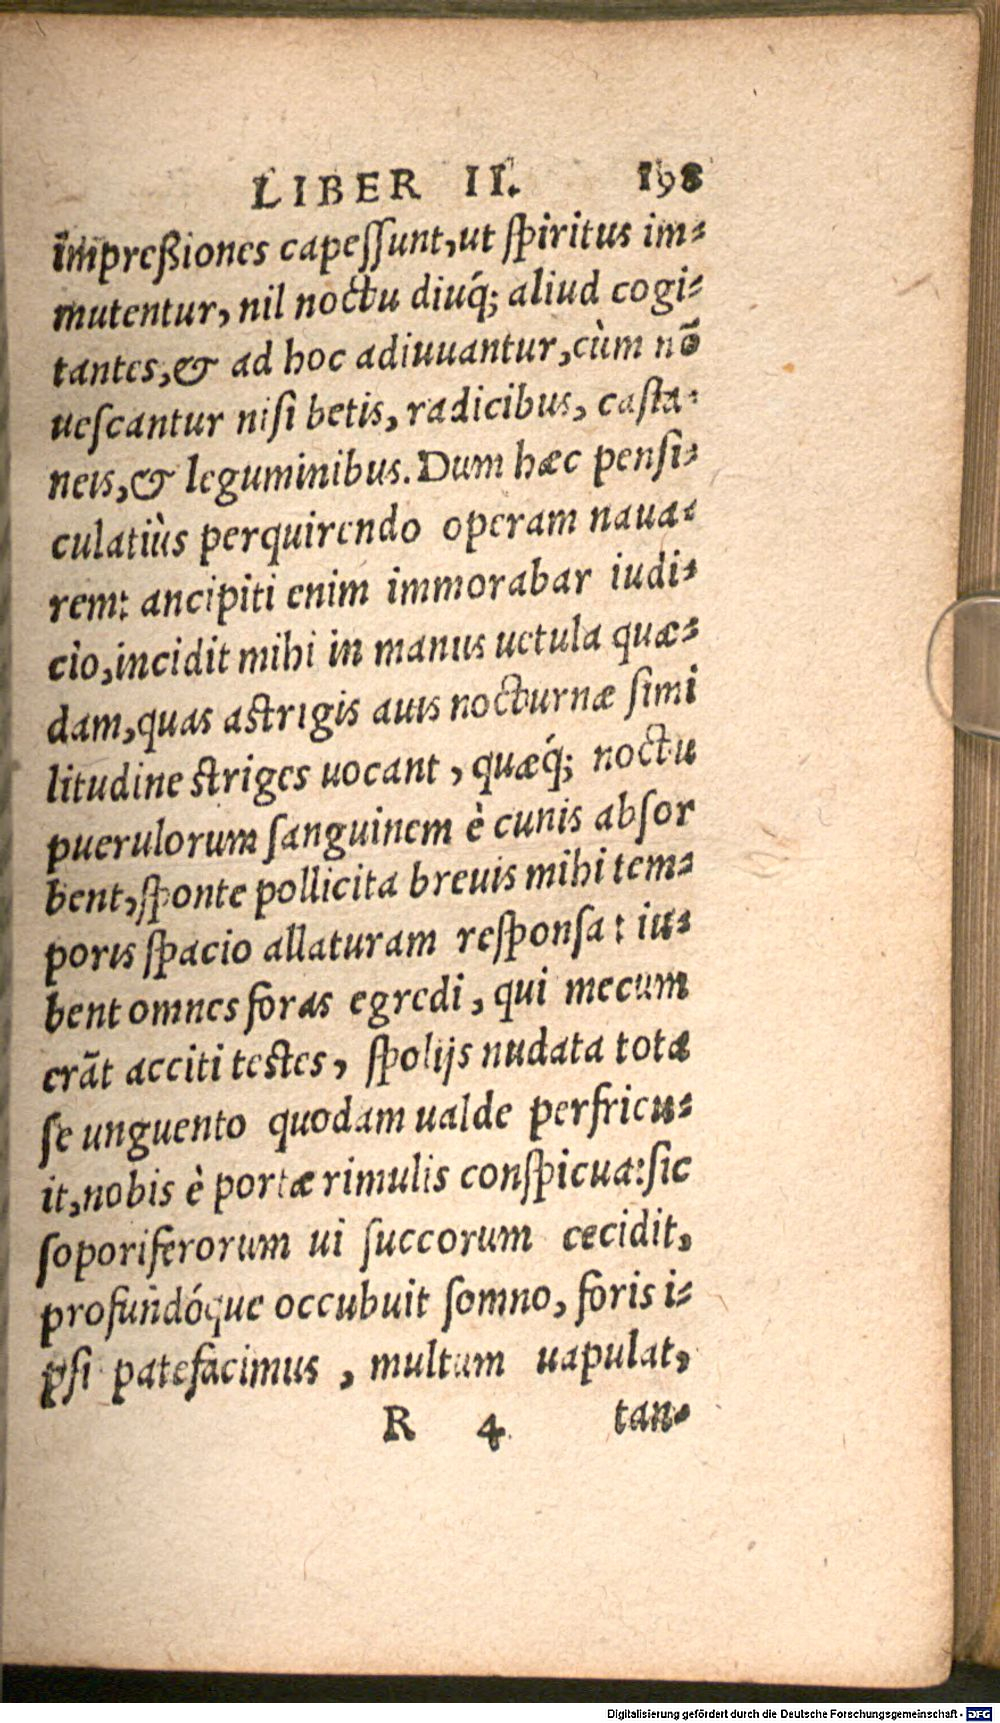 LIBER II. 198
impreßiones capeſſunt, ut ſpiritus im-
mutentur, nil noctu diuq́; aliud cogi-
tantes, & ad hoc adiuuantur, cùm nō
ueſcantur niſi betis, radicibus, caſta-
neis, & leguminibus. Dum hæc penſi-
culatiùs perquirendo operam naua-
rem: ancipiti enim immorabar iudi-
cio, incidit mihi in manus uetula quæ-
dam, quas astrigis auis nocturnæ ſimi
litudine striges uocant, quæq́; noctu
puerulorum ſanguinem è cunis abſor
bent, ſponte pollicita breuis mihi tem-
poris ſpacio allaturam reſponſa: iu-
bent omnes foras egredi, qui mecum
erāt acciti testes, ſpolijs nudata tota
ſe unguento quodam ualde perfricu-
it, nobis è portæ rimulis conſpicua: ſic
ſoporiferorum ui ſuccorum cecidit,
profundóque occubuit ſomno, foris i-
pſi patefacimus, multum uapulat,
R 4 tan-
Digitalisierung gefördert durch die Deutsche Forschungsgemeinschaft - DFG